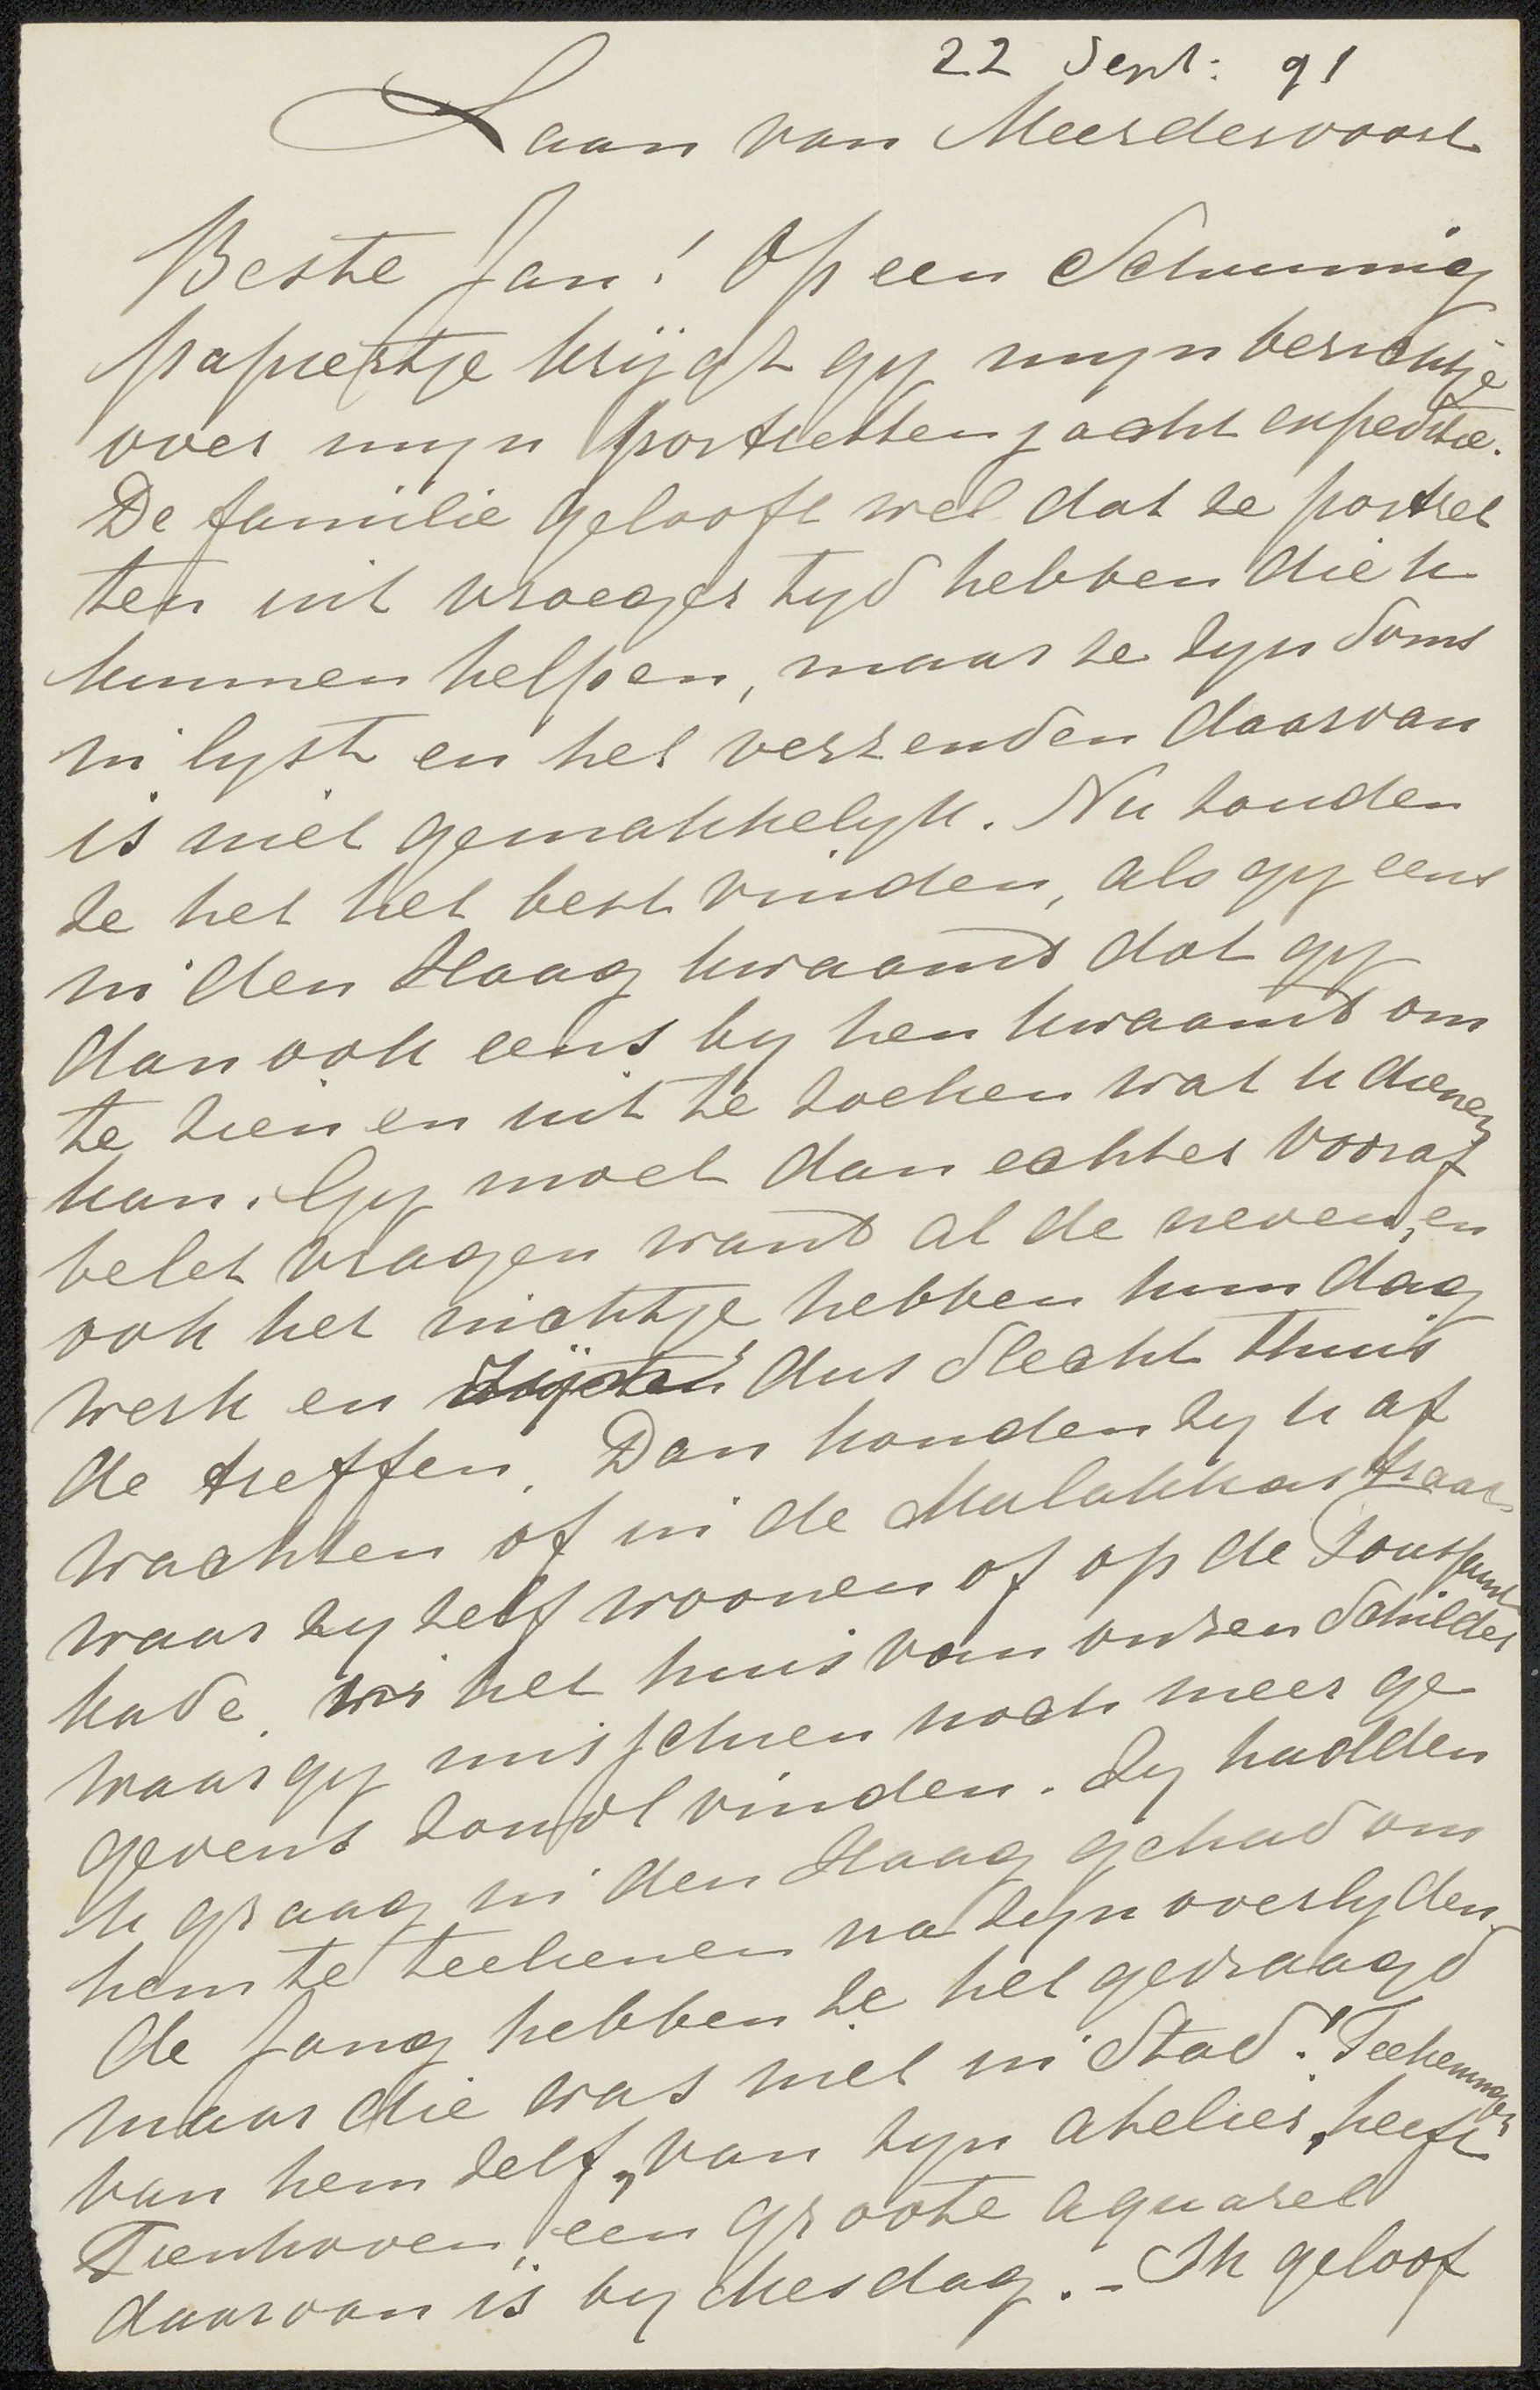 22 Sept: 91
Laan van Meerdervoort
Beste Jan! Op een Schunnig
papiertje krijgt gy myn berichtje
over myn portrettenjacht expeditie.
De familie gelooft wel dat ze portret
ten uit vroeger tyd hebben die u
kunnen helpen, maar ze zyn soms
in lyst en het verzenden daarvan
is niet gemakkelyk. Nu zouden
ze het het best vinden, als gy eens
in den Haag kwaamt dat gy
dan ook eens by hen kwaamt om
te zien en uit te zoeken wat u dienen
kan. Gy moet dan echter vooraf
belet vragen want al de neven, en
ook het nichtje, hebben hun dag
werk en zijn dus slecht thuis
de treffen. Dan konden zy u af
wachten of in de Malakkastraat
waar zy zelf woonen of op de Toussaint
kade, in het huis van onzen Schilder
waar gy misschien noch meer ge
gevens zoudt vinden. Zy hadden
u graag in den Haag gehad om
hem te teekenen na zyn overlyden.
De Jong hebben ze het gevraagd
maar die was niet in Stad! Teekeningen
van hem zelf, van zyn atelier, heeft
Tienhoven, een groote aquarel
daarvan is by Mesdag. - Ik geloof